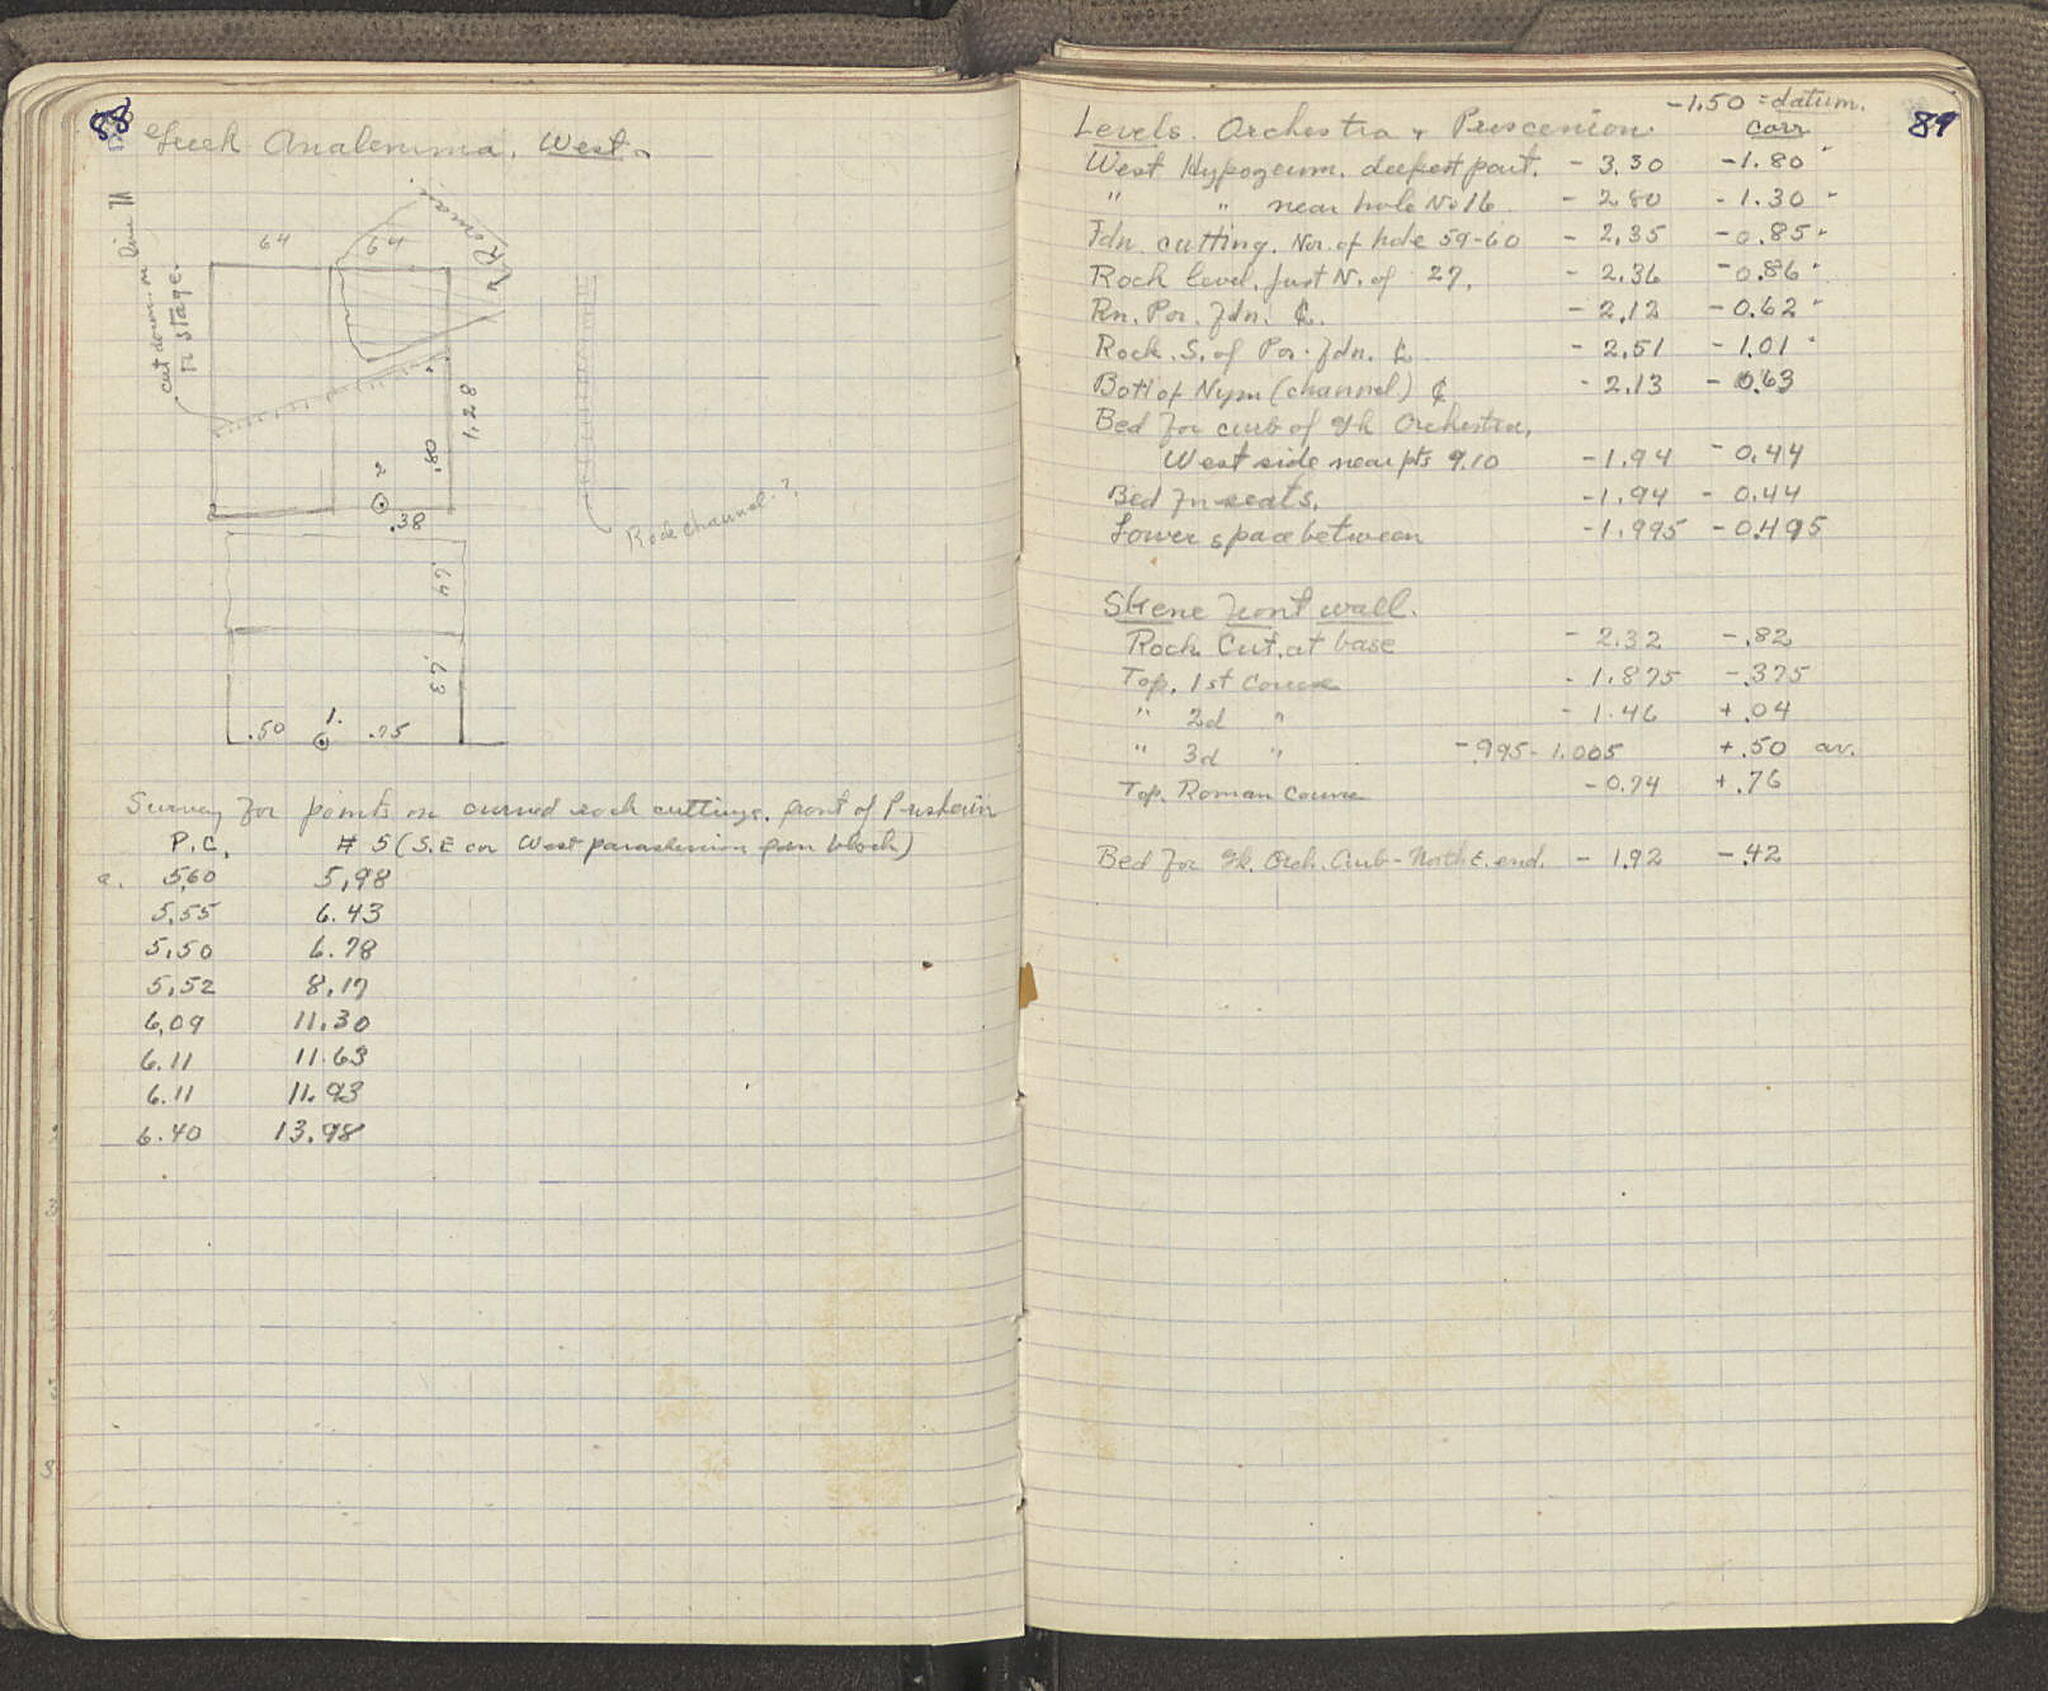 88
Greek Analemma. West.
Line
cut down in
R stage.
64
64
Roman
1.28
.80
2
.38
Rock channel?
.64
.63
1.
.50
.75
Survey for points on curved rock cuttings. front of
P.C. # 5 (S.E cor West paraskenion block)
a. 5.60 5.98
5.55 6.43
5.50 6.78
5.52 8.17
6.09 11.30
6.11 11.63
6.11 11.93
6.40 13.98
89
-1.50 = datum.
Levels. Orchestra + Proscenion. corr
West Hypogeum. deepest part. - 3.30 -1.80
" " near hole No 16 - 2.80 - 1.30
Fdn. cutting. Nor. of hole 59-60 - 2.35 -0.85
Rock level. just N. of 27. - 2.36 -0.86
Rn. Por. Fdn. ℄. - 2.12 - 0.62
Rock. S. of Por. Fdn. ℄ - 2.51 - 1.01
Bott of Nym (channel) ℄ - 2.13 - 0.63
Bed for curb of Gk Orchestra,
West side near pts 9.10 -1.94 - 0.44
Bed for seats. -1.94 - 0.44
Lower space between -1.995 - 0.495
Skene front wall.
Rock Cut. at base - 2.32 -.82
Top. 1st Course - 1.875 -.375
" 2d " - 1.46 + .04
" 3d " -.995-1.005 +.50 av.
Top. Roman Course -0.74 +.76
Bed for Gk. Orch. Curb - North E. end. - 1.92 -.42